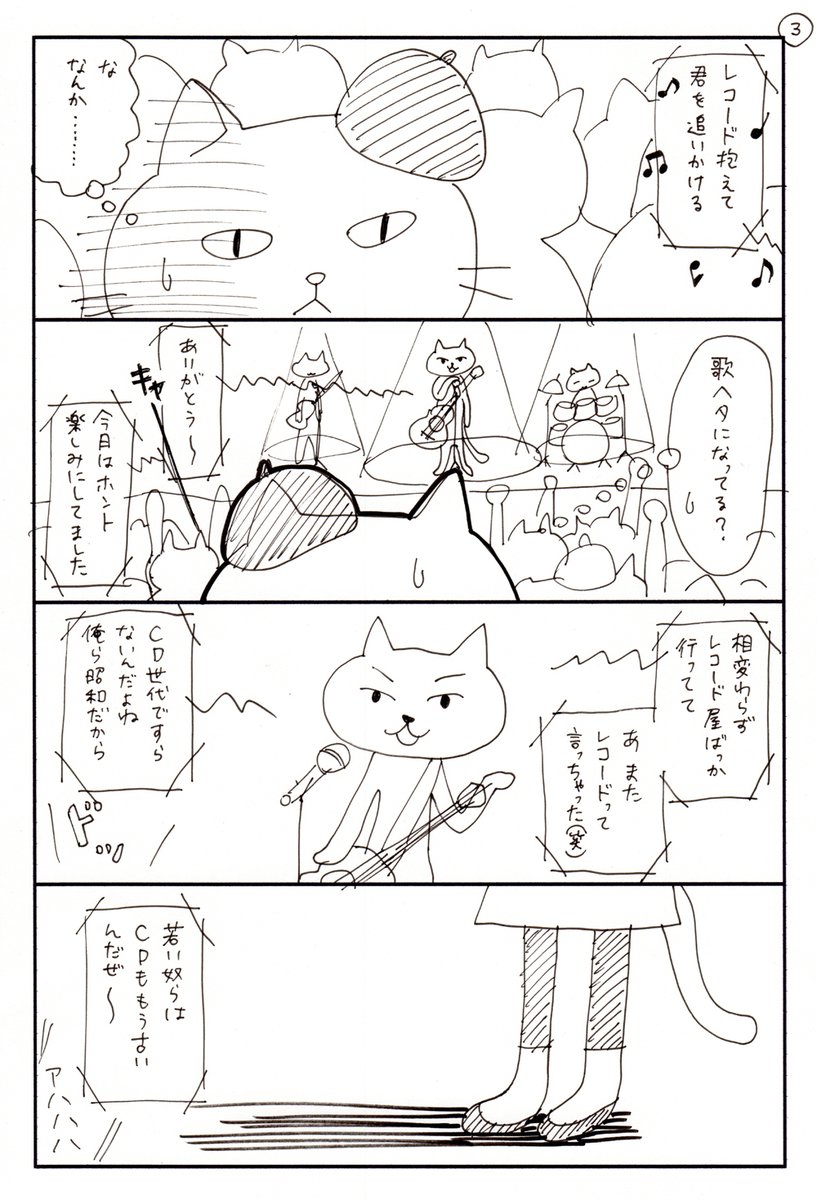 3
レコード抱えて
君を追いかける
な
なんか………
歌ヘタになってる?
ありがとう〜
キャー
今日はホント
楽しみにしてました
相変わらず
レコード屋ばっか
行ってて
あ また
レコードって
言っちゃった(笑)
CD世代ですら
ないんだよね
俺ら昭和だから
ドッ
若い奴らは
CDももうすい
んだぜ〜
アハハハハ